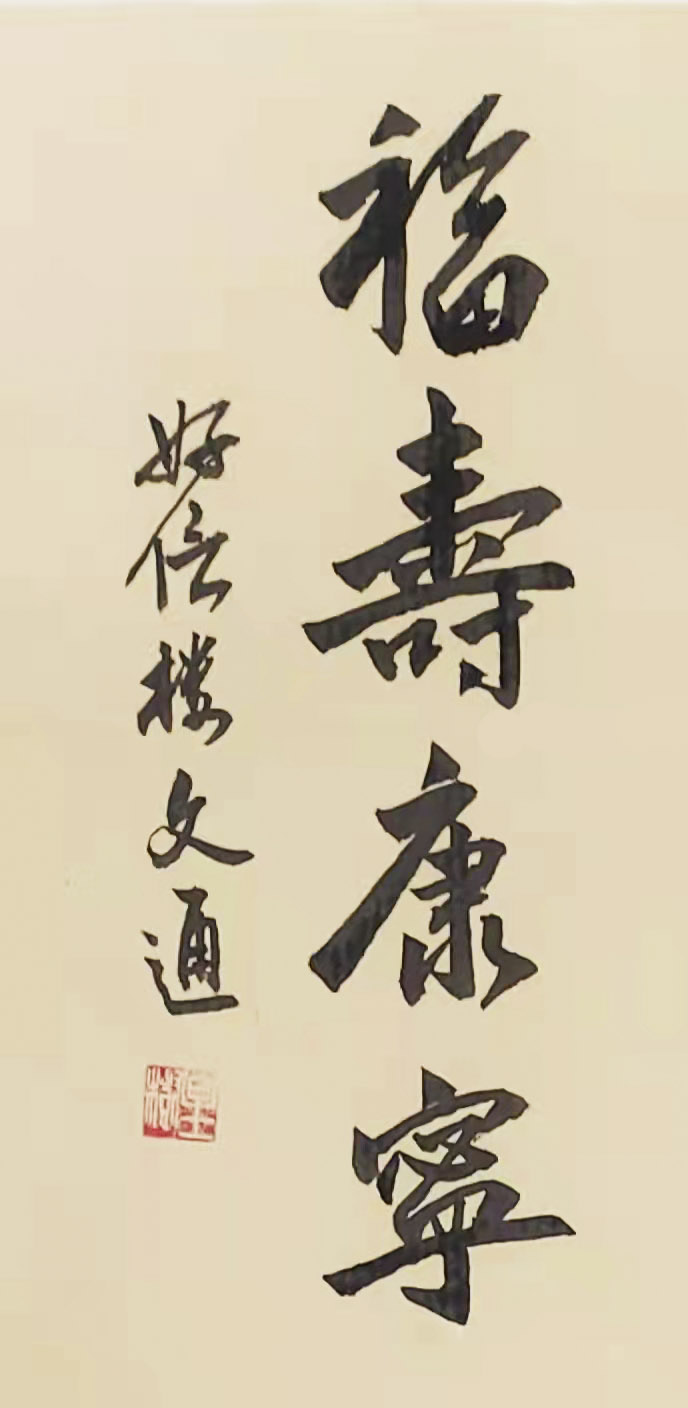 福壽康寧
好信樓文通